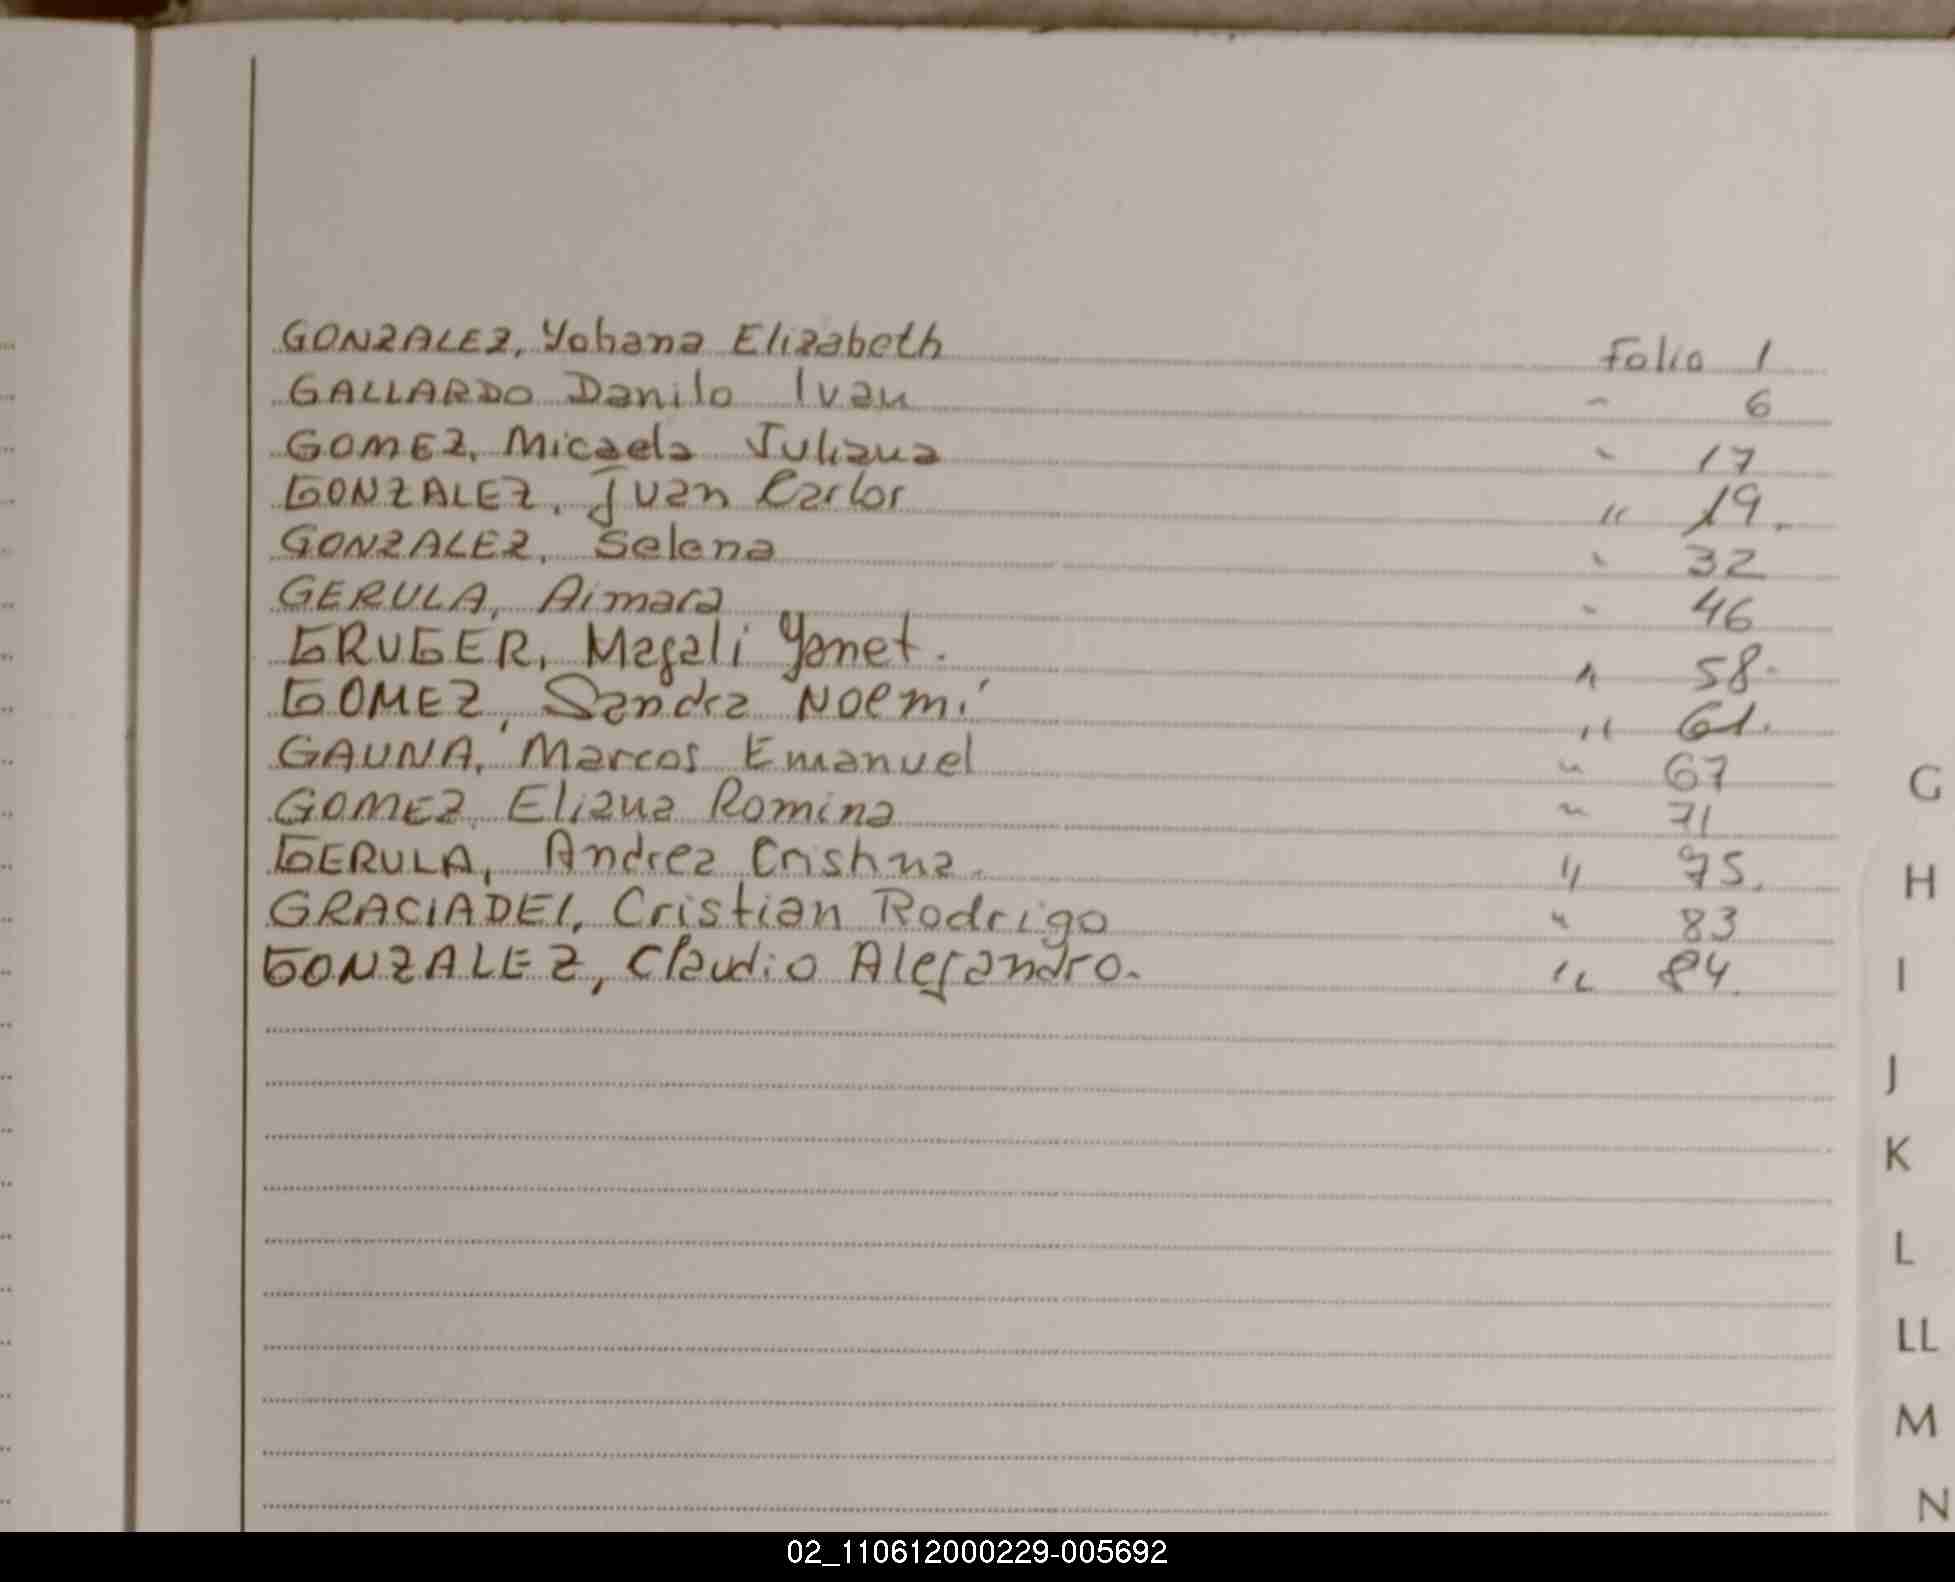 GONZALEZ, Yohana Elizabeth Folio 1
GALLARDO Danilo Ivan " 6
GOMEZ, Micaela Juliana " 17
GONZALEZ, Juan Carlos " 19.
GONZALEZ, Selena " 32
GERULA, Aimara " 46
GRUGER, Magali Yanet. " 58.
GOMEZ, Sandra Noemí " 61.
GAUNA, Marcos Emanuel " 67
GOMEZ, Eliana Romina " 71
GERULA, Andrea Cristina. " 75.
GRACIADEI, Cristian Rodrigo " 83
GONZALEZ, Claudio Alejandro. " 84.
G
H
I
J
K
L
LL
M
N
02_110612000229-005692